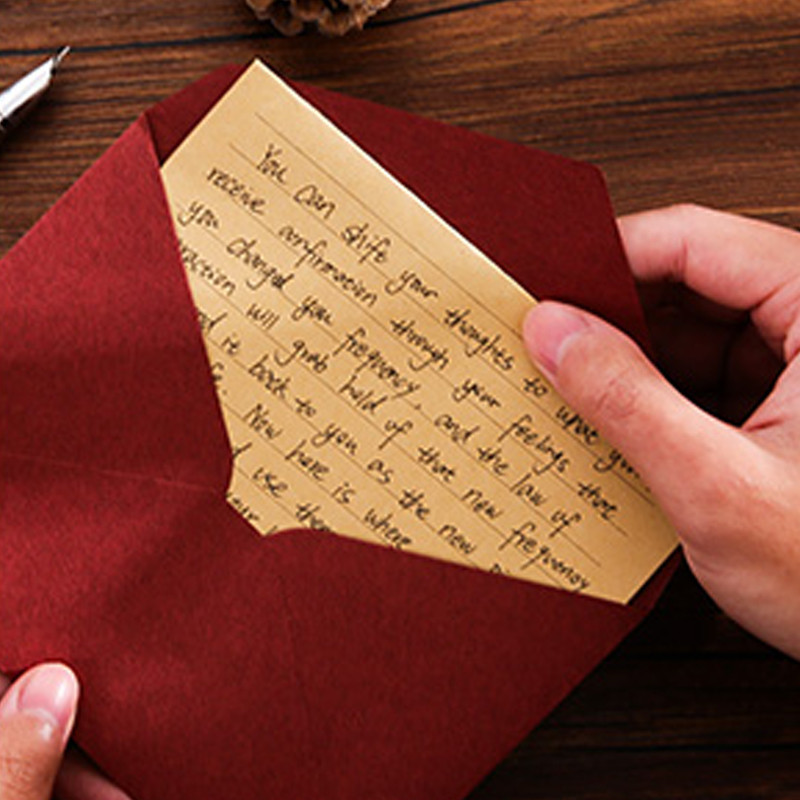 You can shift your thoughts to what
receive confirmation through your feelings that
you changed you frequency, and the law of
will grab hold of that new frequency
it back to you as the new
Now here is where
use